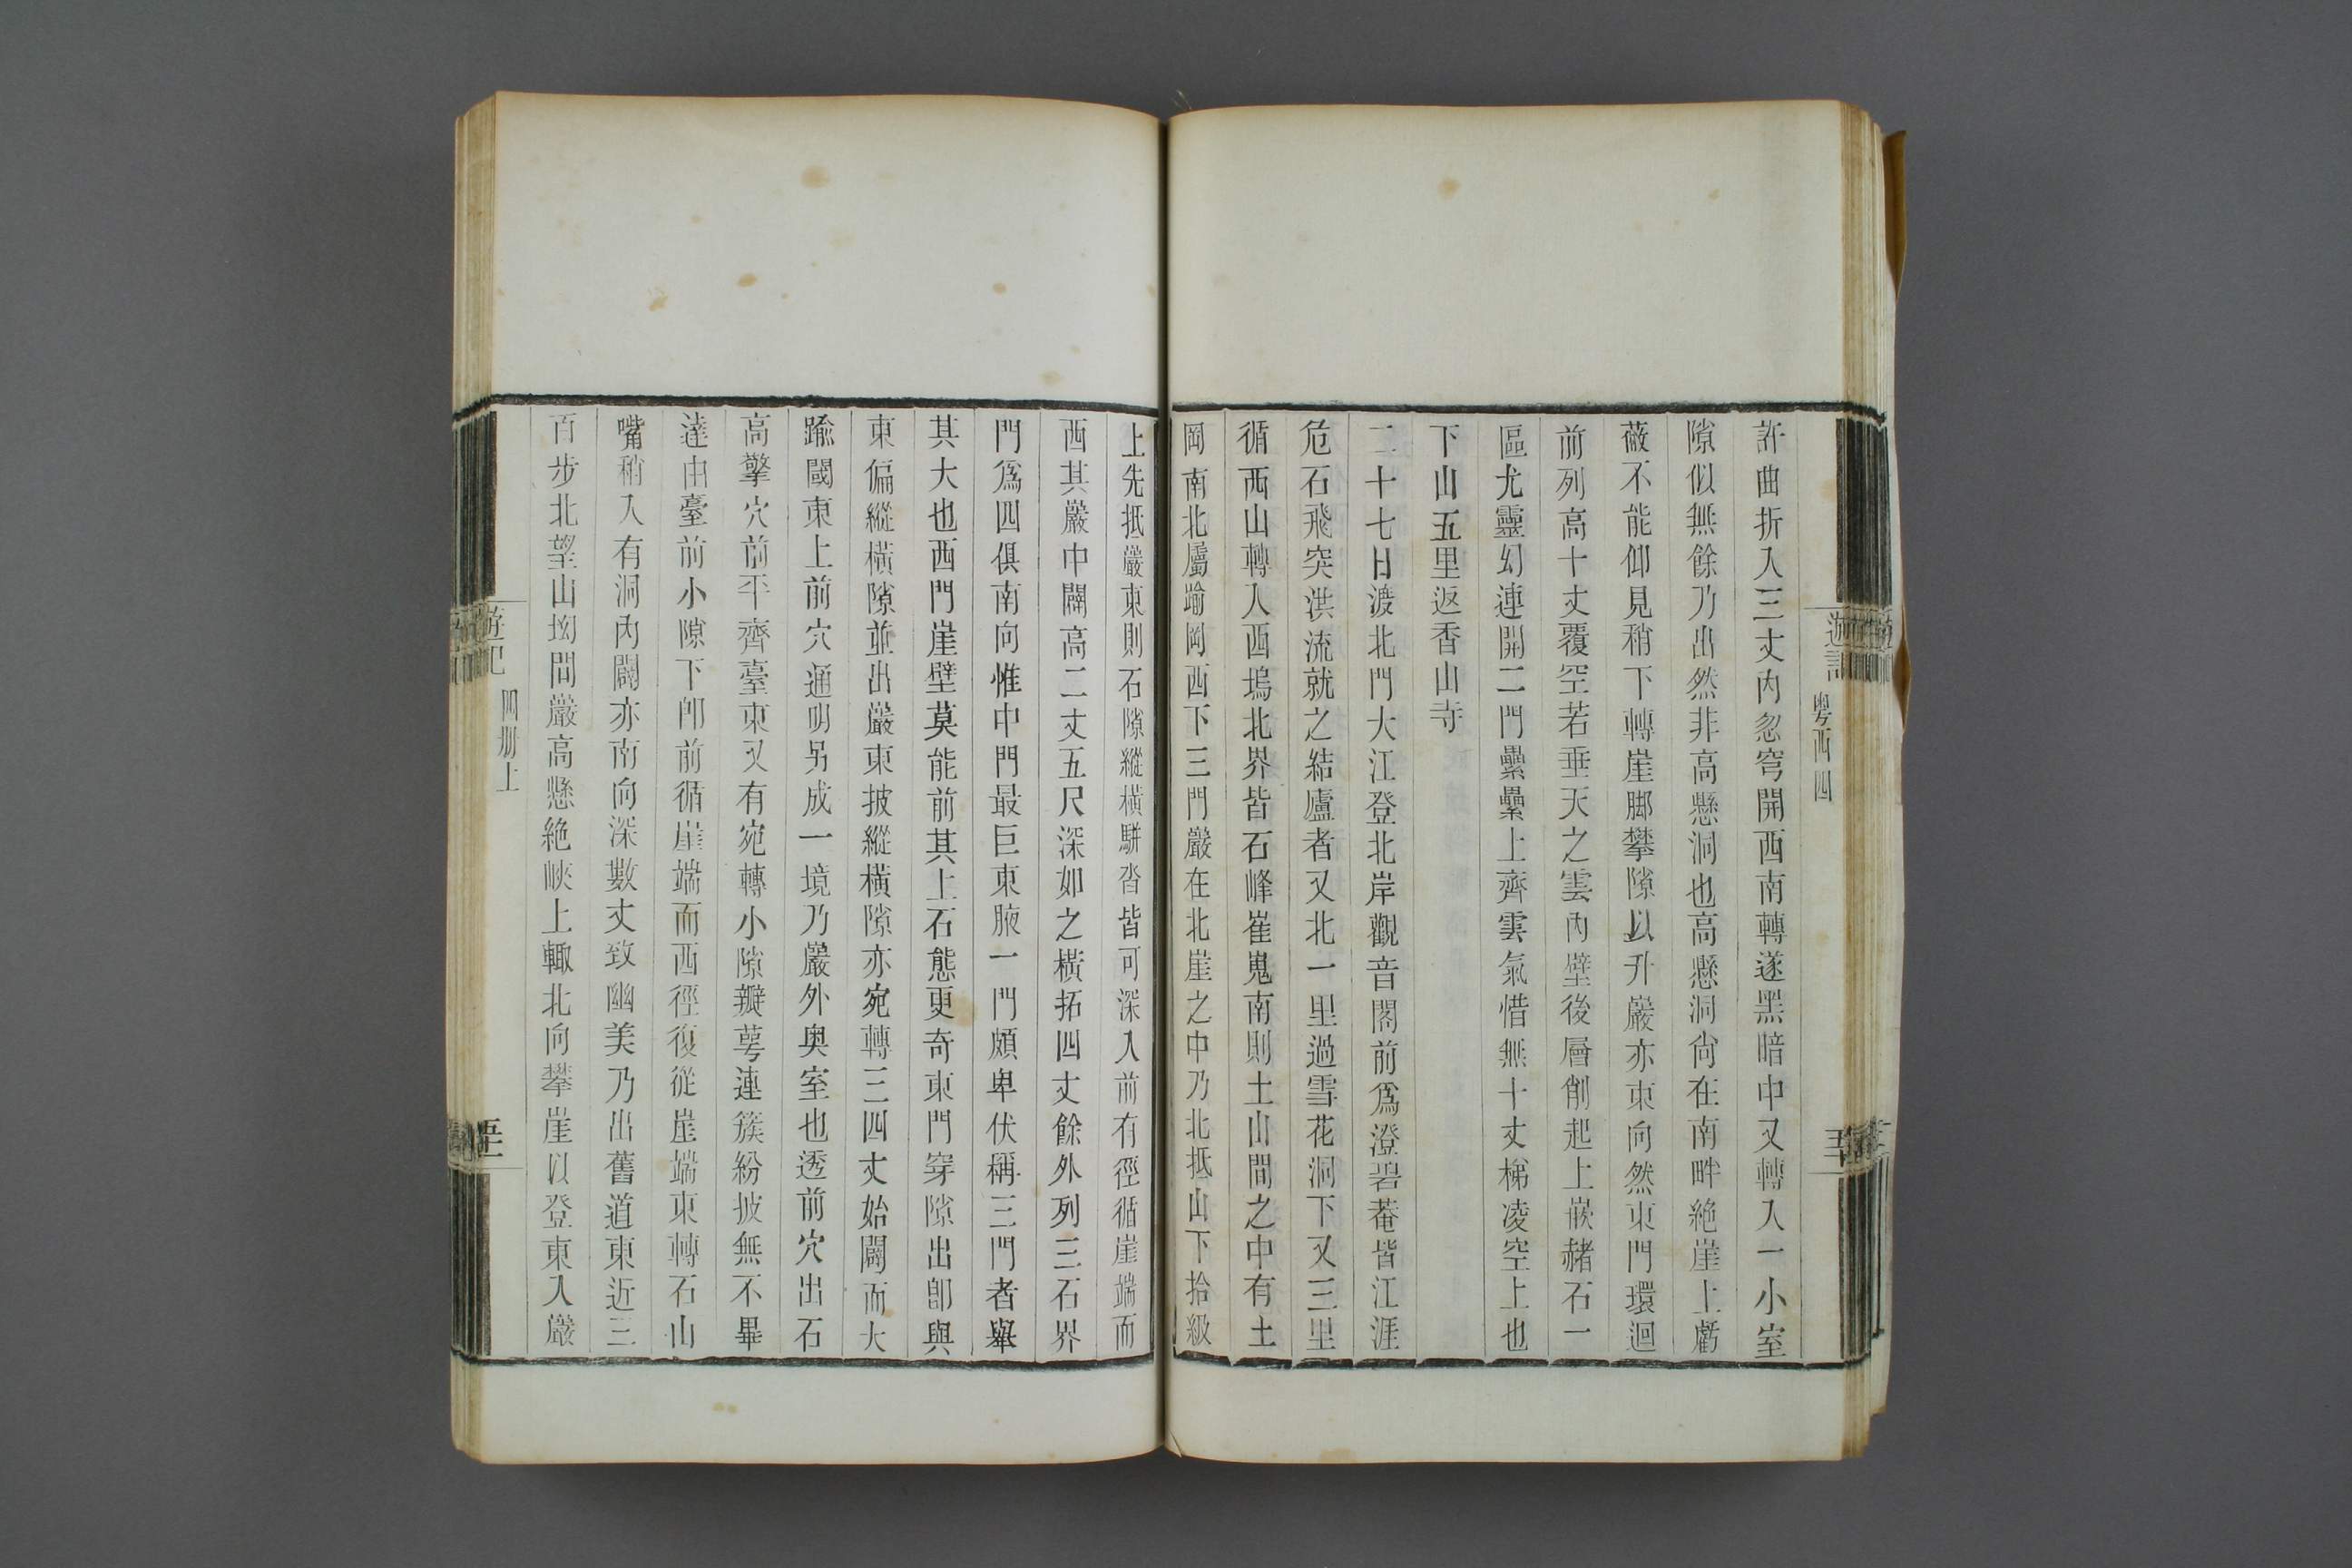 粵西四
許曲折入三丈內忽穹開西南轉遂黑暗中又轉入一小室
隙似無餘乃出然非高懸洞也高懸洞尙在南畔絶崖上虧
蔽不能仰見稍下轉崖脚攀隙以升巖亦東向然東門環迴
前列高十丈覆空若垂天之雲內壁後層削起上嵌赭石一
區尤靈幻連開二門纍纍上齊雲氣惜無十丈梯凌空上也
下山五里返香山寺
二十七日渡北門大江登北岸觀音閣前爲澄碧菴皆江涯
危石飛突洪流就之結廬者又北一里過雪花洞下又三里
循西山轉入西塢北界皆石峰崔嵬南則土山間之中有土
岡南北屬踰岡西下三門巖在北崖之中乃北抵山下拾級
上先抵巖東則石隙縱橫駢沓皆可深入前有徑循崖端而
西其巖中闢高二丈五尺深如之橫拓四丈餘外列三石界
門爲四俱南向惟中門最巨東腋一門頗卑伏稱三門者舉
其大也西門崖壁莫能前其上石態更奇東門穿隙出卽與
東偏縱橫隙並出巖東披縱橫隙亦宛轉三四丈始闢而大
踰閾東上前穴通明另成一境乃巖外奥室也透前穴出石
高擎穴前平齊臺東又有宛轉小隙瓣萼連簇紛披無不畢
達由臺前小隙下卽前循崖端而西徑復從崖端東轉石山
嘴稍入有洞內闢亦南向深數丈致幽美乃出舊道東近三
百步北望山坳間巖高懸絶峽上輙北向攀崖以登東入巖
遊記
四册上